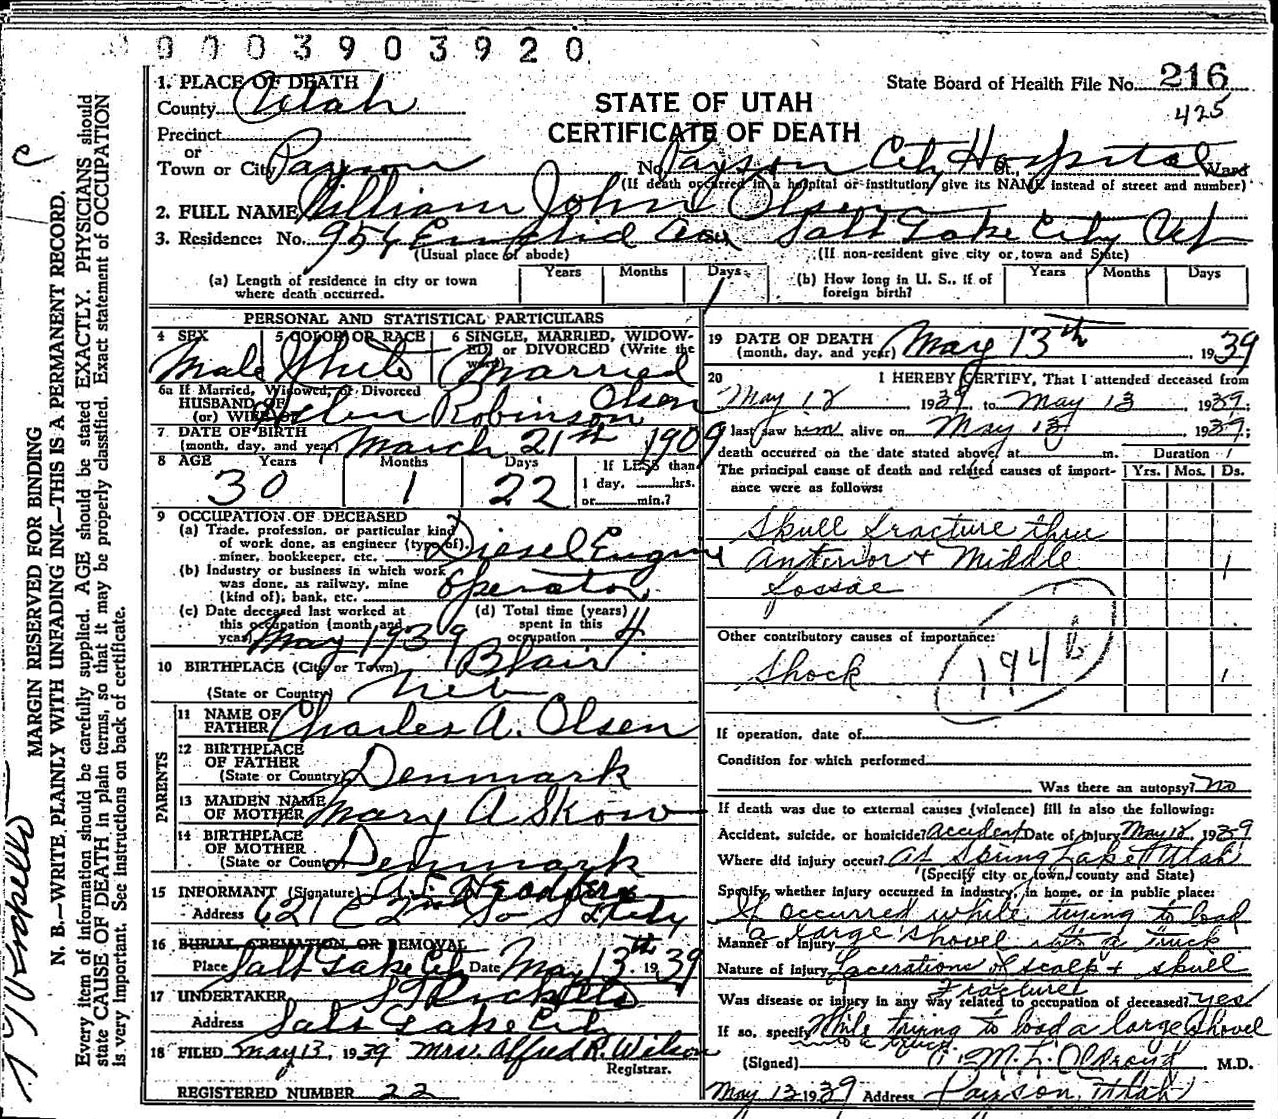 0003903920
1. PLACE OF DEATH
County Utah
State Board of Health File No. 216
425
STATE OF UTAH
CERTIFICATE OF DEATH
Precinct
or
Town or City Payson No. Payson City Hospital St. Ward
(If death occurred in a hospital or institution, give its NAME instead of street and number)
2. FULL NAME William John Olsen
3. Residence: No. 954 Ave Salt Lake City Ut
(Usual place of abode) (If non-resident give city or town and State)
(a) Length of residence in city or town where death occurred. Years Months Days 1
(b) How long in U. S., if of foreign birth? Years Months Days
PERSONAL AND STATISTICAL PARTICULARS
4 SEX Male
5 COLOR OR RACE White
6 SINGLE, MARRIED, WIDOWED, or DIVORCED (Write the word) Married
6a If Married, Widowed, or Divorced
HUSBAND OF
(or) WIFE OF Robinson Olsen
7 DATE OF BIRTH
(month, day, and year) March 21th 1909
8 AGE Years Months Days If LESS than
30 1 22 1 day, hrs.
or min.?
9 OCCUPATION OF DECEASED
(a) Trade, profession, or particular kind of work done, as engineer (type of), miner, bookkeeper, etc. Diesel Engine
(b) Industry or business in which work was done, as railway, mine (kind of), bank, etc. Operator
(c) Date deceased last worked at this occupation (month and year) May 1939
(d) Total time (years) spent in this occupation 4
10 BIRTHPLACE (City or Town) Blair
(State or Country) Neb
PARENTS
11 NAME OF FATHER Charles A. Olsen
12 BIRTHPLACE OF FATHER
(State or Country) Denmark
13 MAIDEN NAME OF MOTHER Mary A Skow
14 BIRTHPLACE OF MOTHER
(State or Country) Denmark
15 INFORMANT (Signature)
Address 621 E 2nd So
16 BURIAL, CREMATION, OR REMOVAL
Place Salt Lake City Date May 13th 1939
17 UNDERTAKER S T Ricketts
Address Salt Lake City
18 FILED May 13, 1939 Mrs. Alfred R. Wilson
Registrar.
REGISTERED NUMBER 22
19 DATE OF DEATH
(month, day, and year) May 13th, 1939
20 I HEREBY CERTIFY, That I attended deceased from
May 12 1939, to May 13 1939;
I last saw him alive on May 13 1939;
death occurred on the date stated above, at m. Duration
The principal cause of death and related causes of importance were as follows: Yrs. Mos. Ds.
Skull fracture thru
Anterior + Middle 1
fossae
Other contributory causes of importance:
Shock 1
194b
If operation, date of
Condition for which performed
Was there an autopsy? No
If death was due to external causes (violence) fill in also the following:
Accident, suicide, or homicide? accident Date of injury May 12, 1939
Where did injury occur? At Spring Lake Utah
(Specify city or town, county and State)
Specify whether injury occurred in industry, in home, or in public place:
It occurred while trying to load
Manner of injury a large shovel into a truck
Nature of injury Lacerations of scalp + skull
fracture
Was disease or injury in any way related to occupation of deceased? yes
If so, specify While trying to load a large shovel
into a truck
(Signed) M. L. Oldroyd, M.D.
May 13 1939 Address Payson, Utah
MARGIN RESERVED FOR BINDING
N. B.—WRITE PLAINLY WITH UNFADING INK—THIS IS A PERMANENT RECORD.
Every item of information should be carefully supplied. AGE should be stated EXACTLY. PHYSICIANS should
state CAUSE OF DEATH in plain terms, so that it may be properly classified. Exact statement of OCCUPATION
is very important. See instructions on back of certificate.